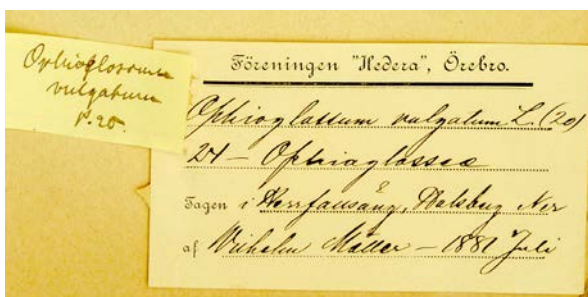 Ophioglossum
vulgatum
P. 20.
Föreningen "Hedera", Örebro.
Ophioglossum vulgatum L. (20)
24 – Ophioglosseæ
Tagen i
af Wilhelm Möller – 1881 Juli